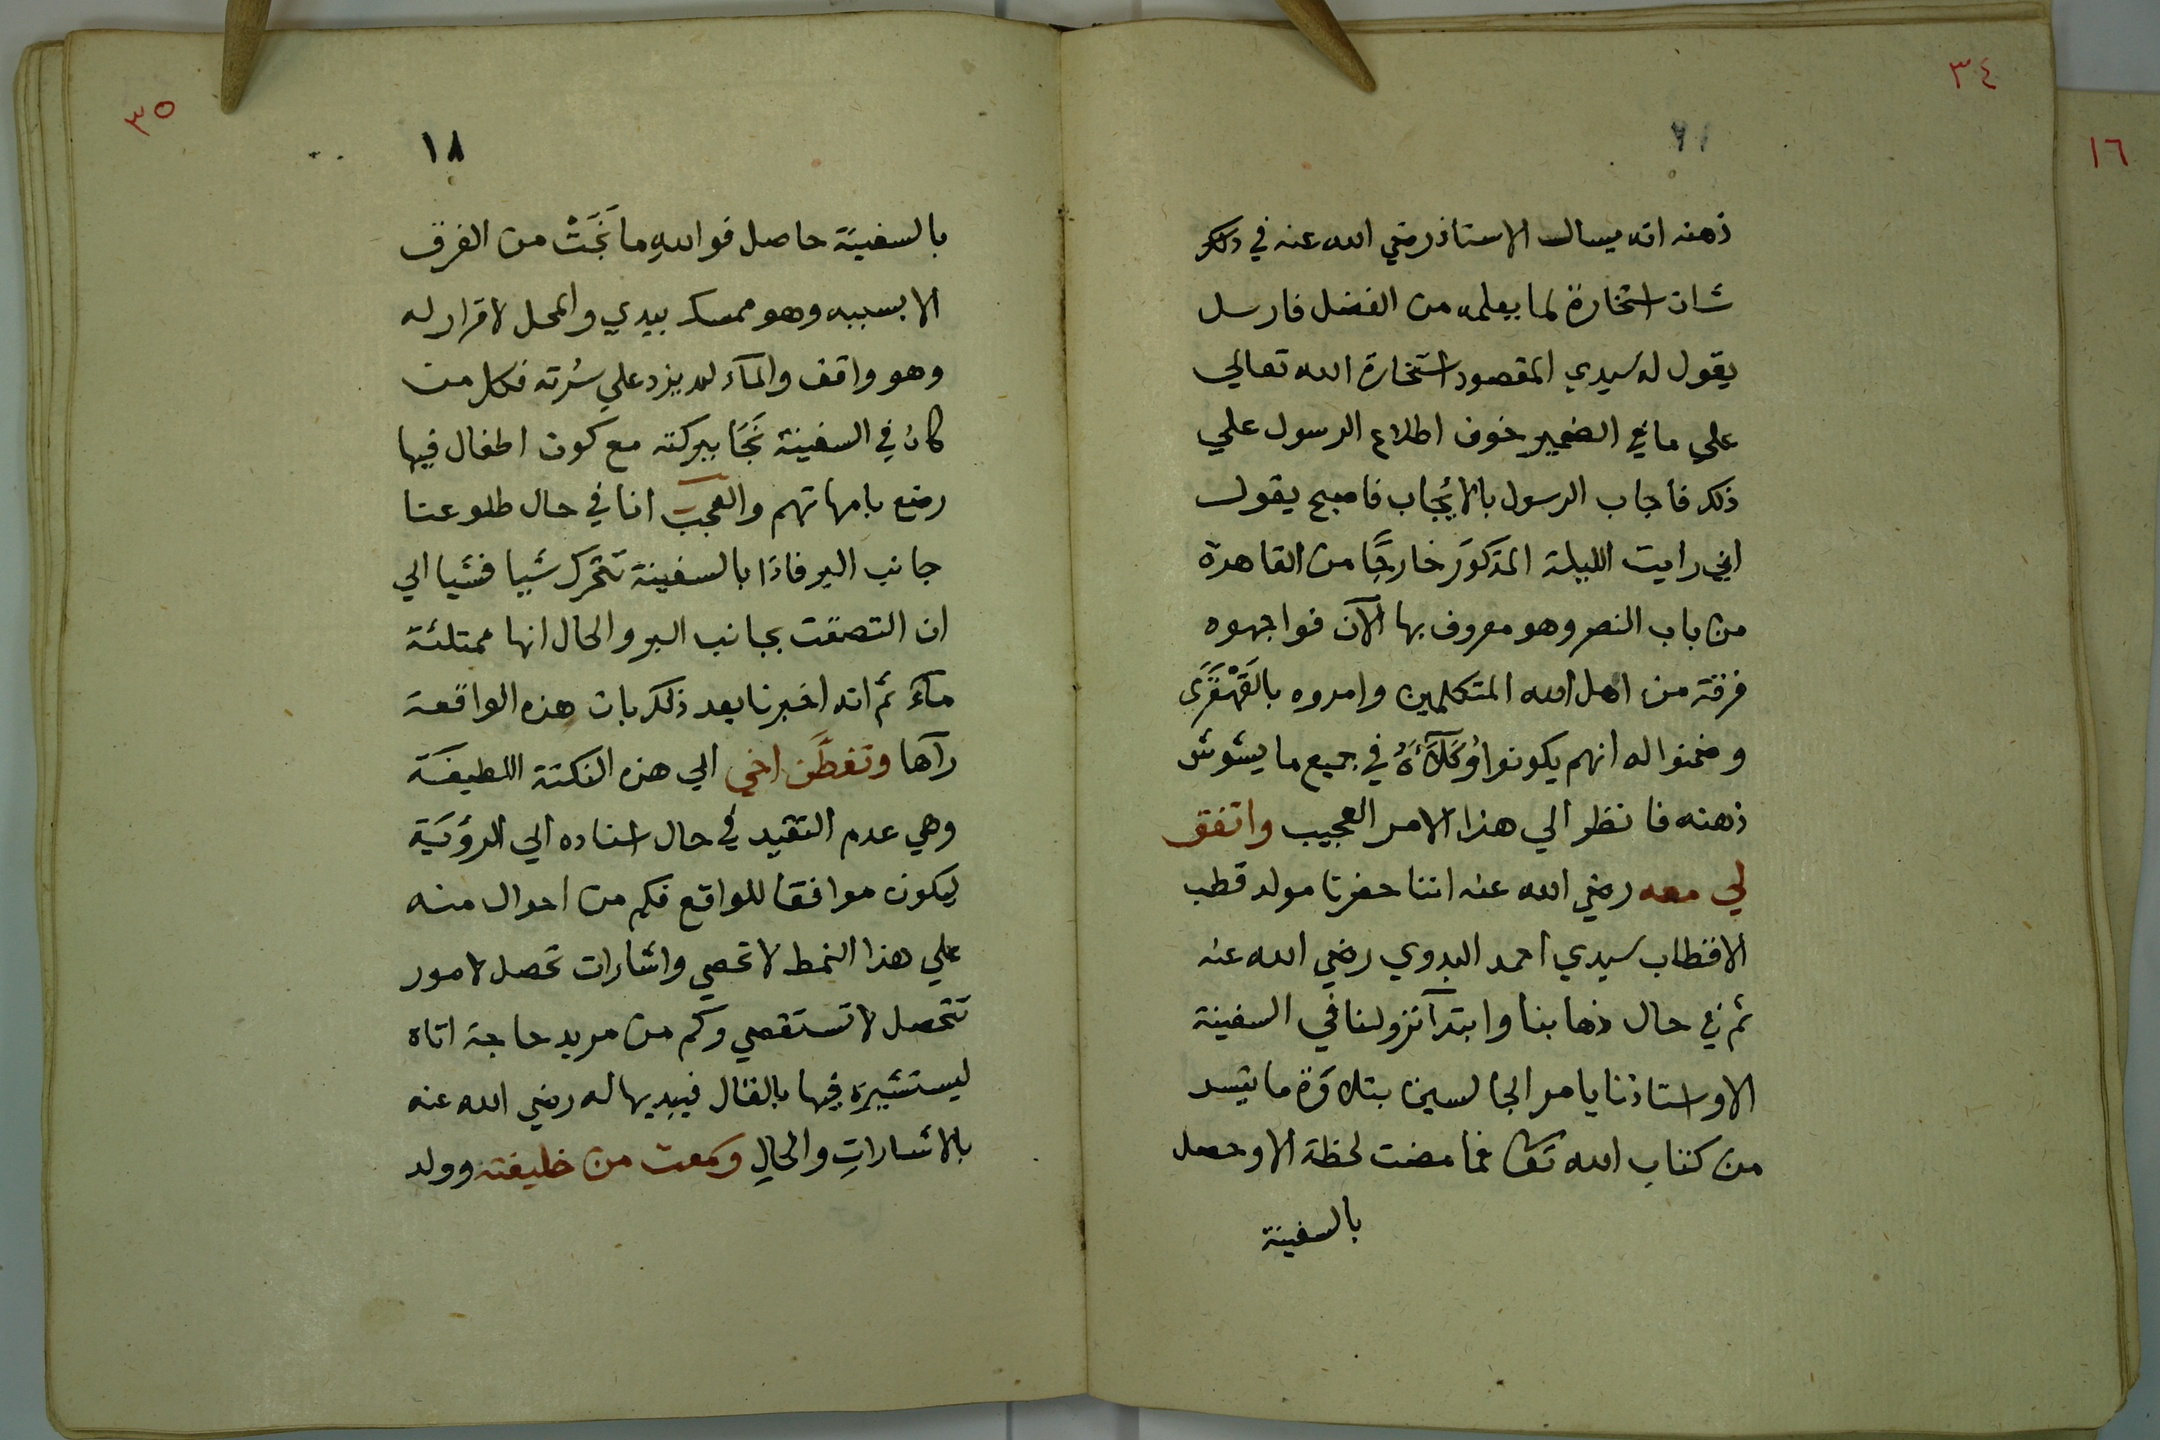 ٣٤
١٦
ذهنه انه يسال الاستاذ رضي الله عنه في ذلك
شان استخارة لما يعلمه من الفضل فارسل
يقول له سيدي المقصود استخارة الله تعالي
علي ما في الضمير خوف اطلاع الرسول علي
ذلك فاجاب الرسول بالايجاب فاصبح يقول
اني رايت الليلة المذكور خارجًا من القاهرة
من باب النصر وهو معروف بها الآن فواجهوه
فرقة من اهل الله المتكلمين وامروه بالقَهْقَرَى
وضمنوا له انهم يكونوا وُكَلَآءَهُ في جميع ما يشوش
ذهنه فانظر الي هذا الامر العجيب واتفق
لي معه رضي الله عنه اننا حضرنا مولد قطب
الاقطاب سيدي احمد البدوي رضي الله عنه
ثم في حال ذهابنا وابتدآ نزولنا في السفينة
الا واستاذنا يامر الجالسين بتلاوة ما تيسر
من كتاب الله تعا فما مضت لحظة الا وحصل
بالسفينة
٣٥
١٨
بالسفينة حاصل فواللهِ ما نَجَتْ من الغرق
الا بسببه وهو ممسك بيدي والمحل لا قرار له
وهو واقف والمآء لم يزد علي سُرته فكل من
كان في السفينة نَجَا ببركته مع كون اطفال فيها
رضع بامهاتهم والعجب انا في حال طلوعنا
جانب البر فاذا بالسفينة تتحرك شيا فشيا الي
ان التصقت بجانب البر والحال انها ممتلئة
مآءً ثم انه اخبرنا بعد ذلك بان هذه الواقعة
رآها وتفطَّن اخي الي هذه النكتة اللطيفة
وهي عدم التقيد في حال اسناده الي الرؤية
ليكون موافقا للواقع فكم من احوال منه
علي هذا النمط لا تحصي واشارات تحصل لامور
تتحصل لا تستقصي وكم من مريد حاجة اتاه
ليستشيره فيها بالقال فيبديها له رضي الله عنه
بالاشاراتِ والحالِ وسمعت من خليفته وولد